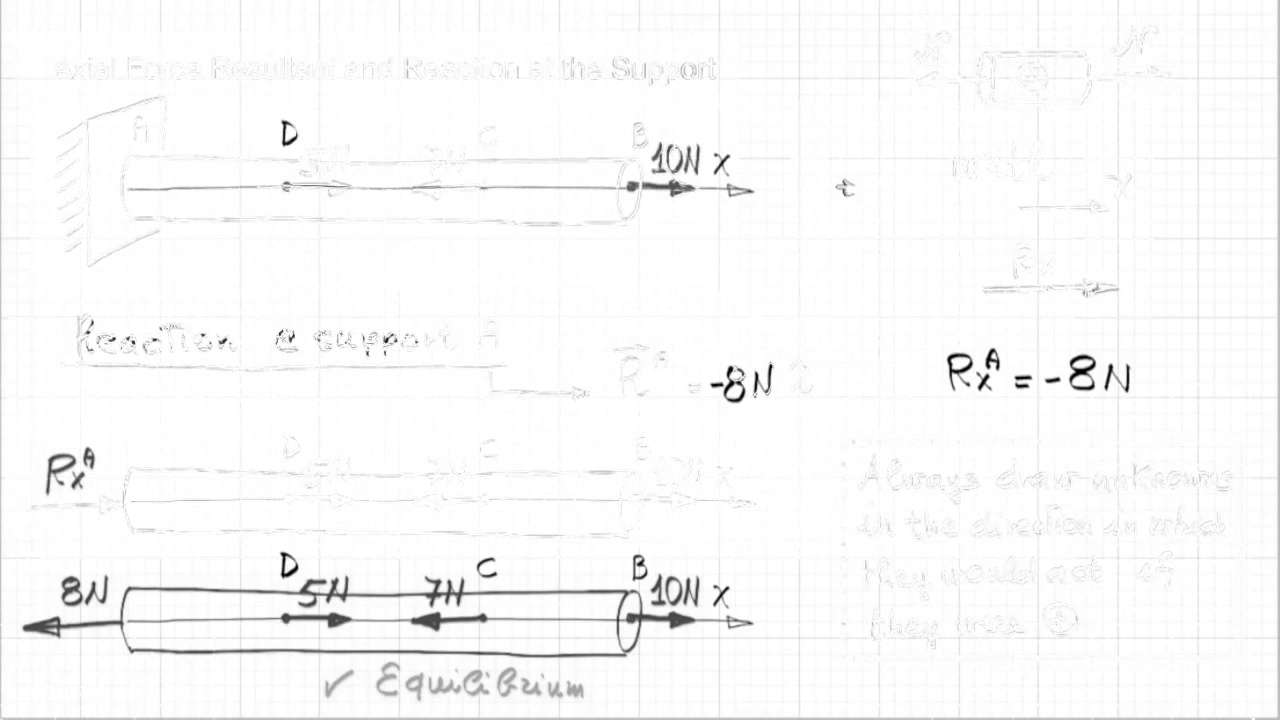 Axial Force Resultant and Reaction at the Support
N N
A D 5N 7N C B 10N x
x
Rx
Reaction @ support A
R A = -8N i
RxA = -8N
RxA D 5N 7N C B 10N x
Always draw unknowns
in the direction in which
they would act if
they were +
8N D 5N 7N C B 10N x
✓ Equilibrium